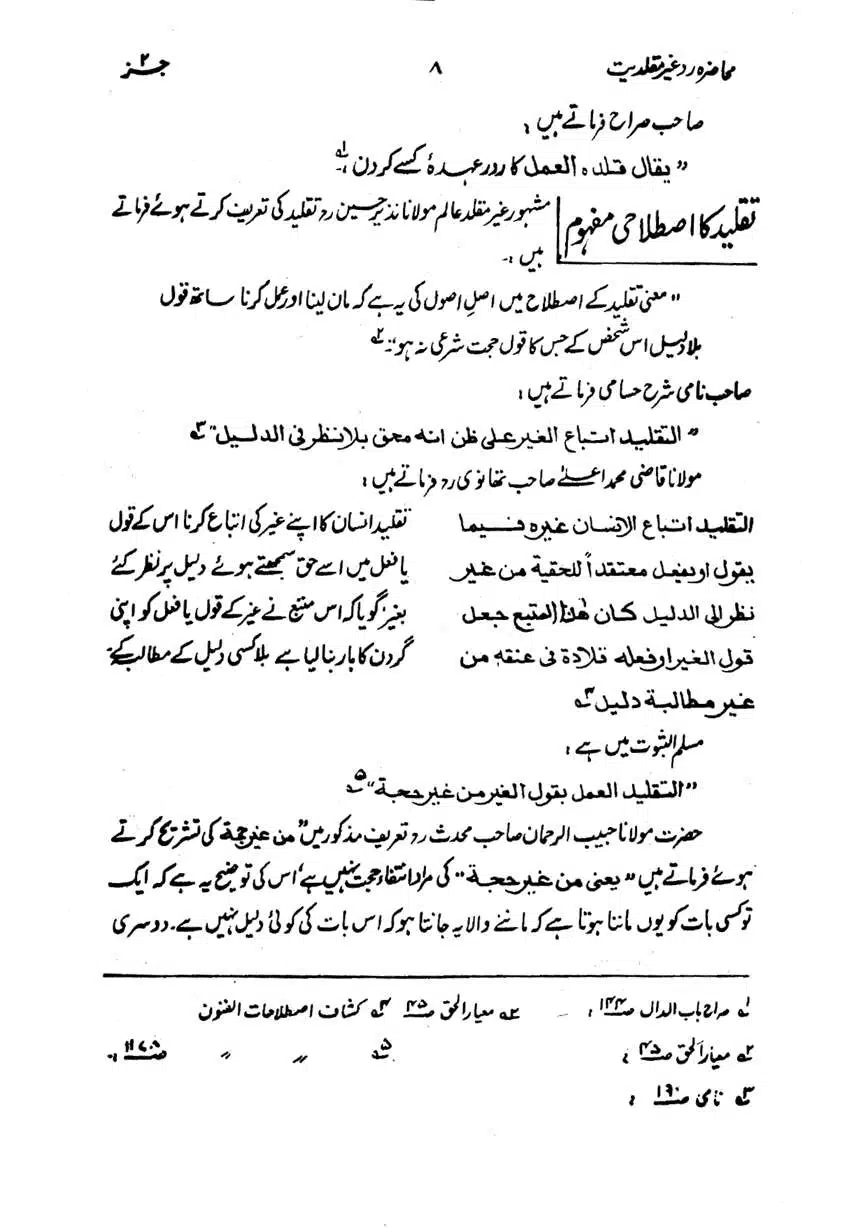 محاضرہ رد غیر مقلدیت ۸ جز ۲
صاحب صراح فرماتے ہیں :
” یقال قلدہ العمل کار در عہدۂ کسے کردن :۔ لہ
تقلید کا اصطلاحی مفہوم
مشہور غیر مقلد عالم مولانا نذیر حسین رہ تقلید کی تعریف کرتے ہوئے فرماتے
ہیں :۔
” معنی تقلید کے اصطلاح میں اصل اصول کی یہ ہے کہ مان لینا اور عمل کرنا ساتھ قول
بلا دلیل اس شخص کے جس کا قول حجت شرعی نہ ہو“:۔ ۲ہ
صاحب نامی شرح حسامی فرماتے ہیں :
” التقلید اتباع الغیر علی ظن انه محق بلا نظر فی الدلیل“ ۳ہ
مولانا قاضی محمد اعلےٰ صاحب تھانوی رہ فرماتے ہیں :
التقلید اتباع الانسان غیرہ فیما
یقول او یفعل معتقداً للحقیة من غیر
نظر الی الدلیل کان ھٰذا المتبع جعل
قول الغیر او فعله قلادة فی عنقه من
غیر مطالبة دلیل ۴ہ
تقلید انسان کا اپنے غیر کی اتباع کرنا اس کے قول
یا فعل میں اسے حق سمجھتے ہوئے دلیل پر نظر کئے
بغیر گویا کہ اس متبع نے غیر کے قول یا فعل کو اپنی
گردن کا ہار بنا لیا ہے بلا کسی دلیل کے مطالبہ کے:۔
مسلم الثبوت میں ہے :
”التقلید العمل بقول الغیر من غیر حجة“ ۵ہ
حضرت مولانا حبیب الرحمان صاحب محدث رہ تعریف مذکور میں ”من غیر حجة کی تشریح کرتے
ہوئے فرماتے ہیں ”یعنی من غیر حجة“ کی مراد انتفاء حجت نہیں ہے‘ اس کی توضیح یہ ہے کہ ایک
تو کسی بات کو یوں ماننا ہوتا ہے کہ ماننے والا یہ جانتا ہو کہ اس بات کی کوئی دلیل نہیں ہے۔ دوسری
۱ہ صراح باب الدال صـ۱۴۴ : ۲ہ معیار الحق صـ۴۵ ۴ہ کشاف اصطلاحات الفنون
۲ہ معیار الحق صـ۴۵ : ۵ہ ” ” صـ۱۱۷۸ :۔
۳ہ نامی صـ۱۹۰ :